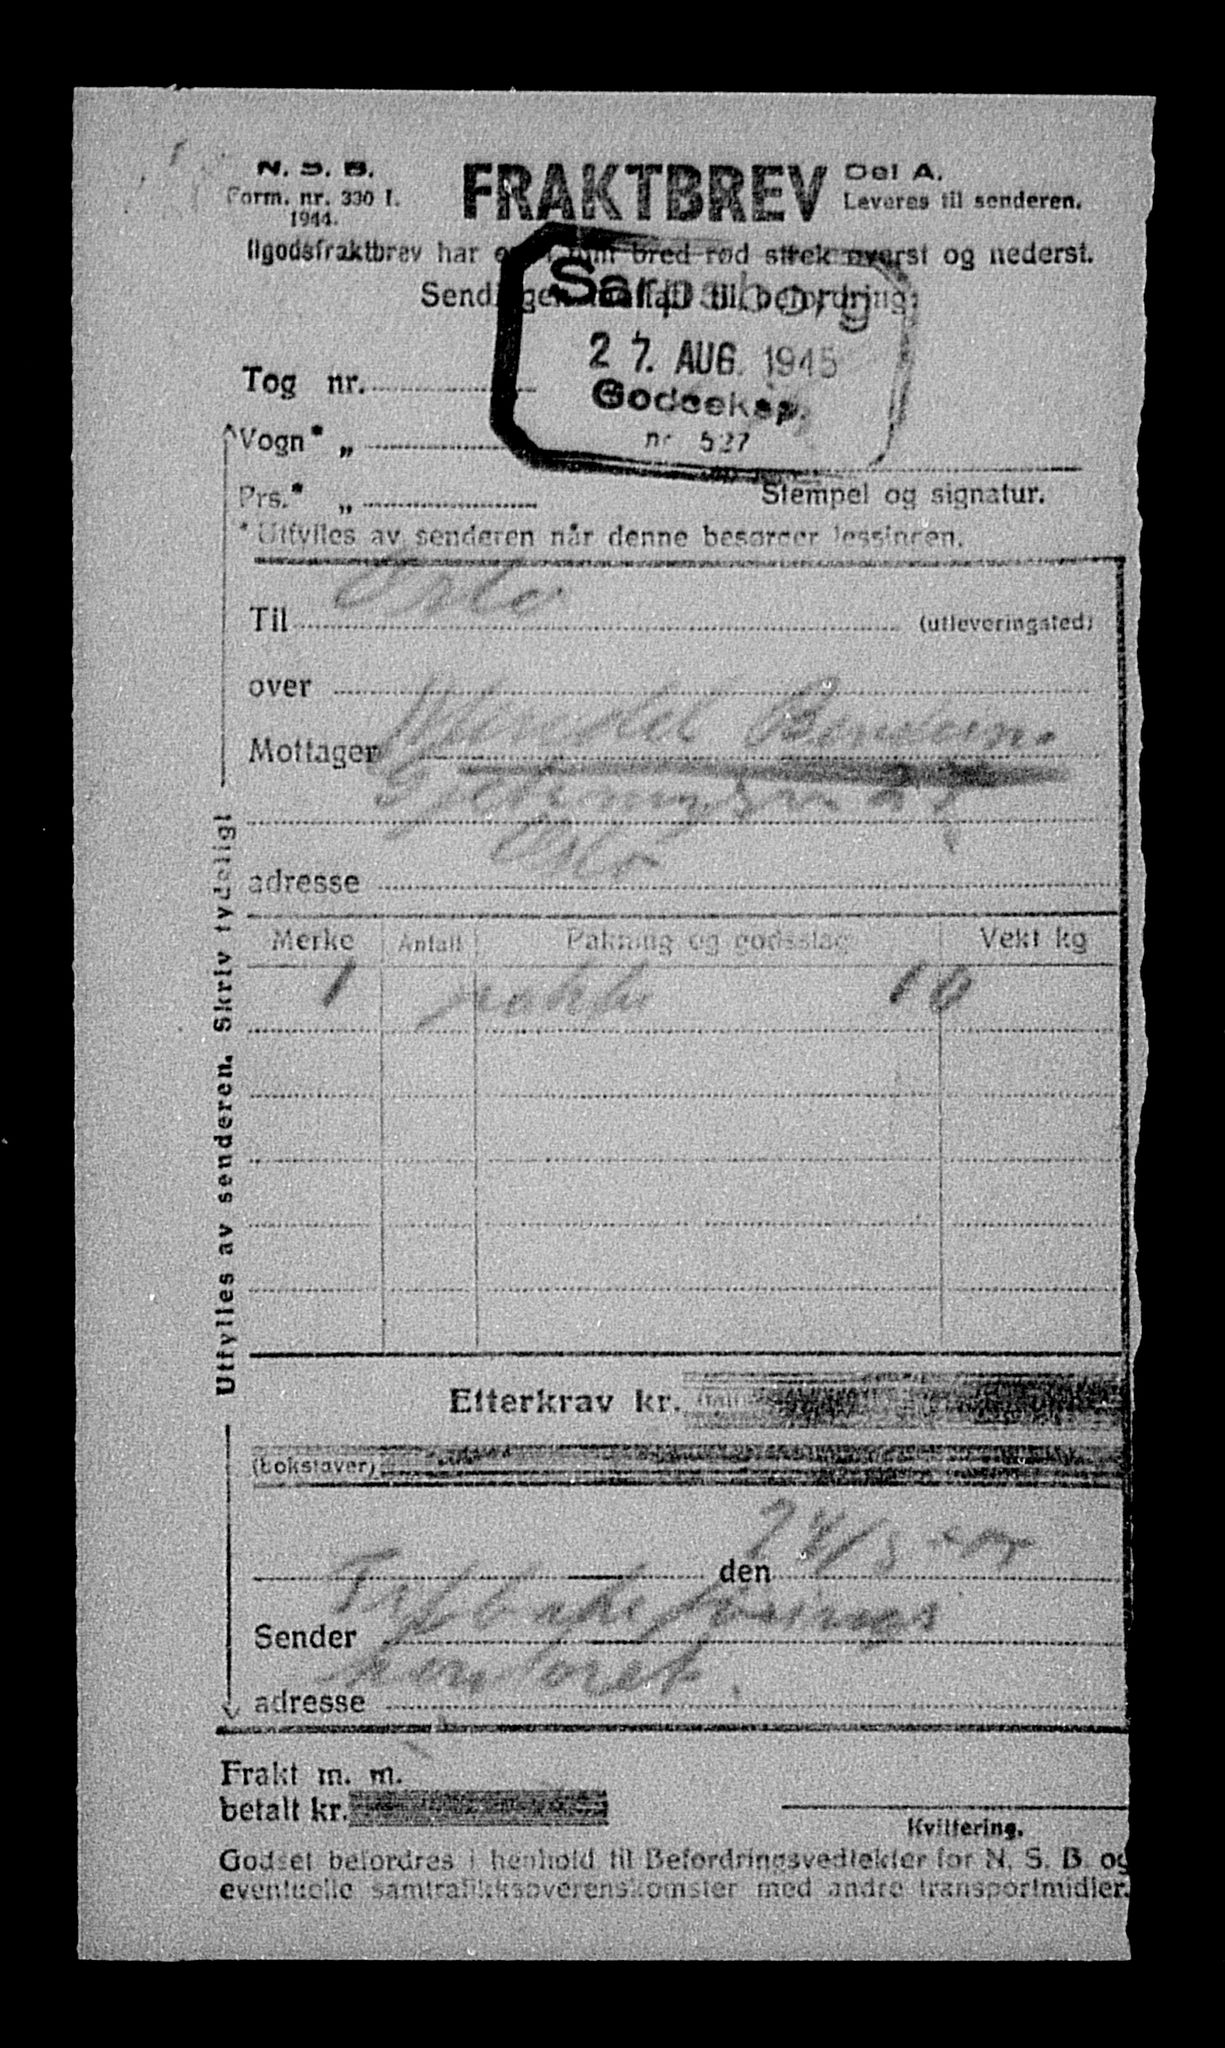 N. S. B.
Form. nr. 330 I.
1944.
FRAKTBREV
Del A.
Leveres til senderen.
Ilgodsfraktbrev har bred rød strek øverst og nederst.
Sendingen til befordring:
Sarpsborg
27. AUG. 1945
Godseksp.
nr. 527
Tog nr.
Vogn* „
Prs.* „
Stempel og signatur.
* Utfylles av senderen når denne besørger lessingen.
Til Oslo (utleveringsted)
over
Mottager Mendel
Oslo
adresse
Merke Antall Pakning og godsslag Vekt kg
1 pakke 10
Utfylles av senderen. Skriv tydelig!
Etterkrav kr.
(bokstaver)
den
Sender Tilbakeførings
kontoret.
adresse
Frakt m. m.
betalt kr.
Kvittering.
Godset befordres i henhold til Befordringsvedtekter for N. S. B. og
eventuelle samtrafikksoverenskomster med andre transportmidler.